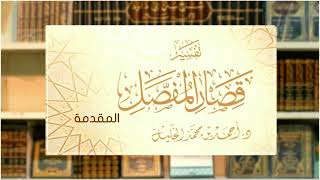 تفسير
قصار المفصل
المقدمة
د. أحمد بن محمد الخليل